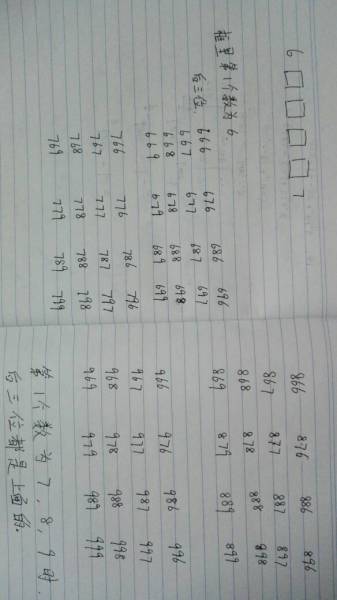 6 □ □ □ □ 7
框里第1个数为6.
后三位.
666 676 686 696
667 677 687 697
668 678 688 698
669 679 689 699
766 776 786 796
767 777 787 797
768 778 788 798
769 779 789 799
866 876 886 896
867 877 887 897
868 878 888 898
869 879 889 899
966 976 986 996
967 977 987 997
968 978 988 998
969 979 989 999
第1个数为7,8,9时.
后三位都是上面的.